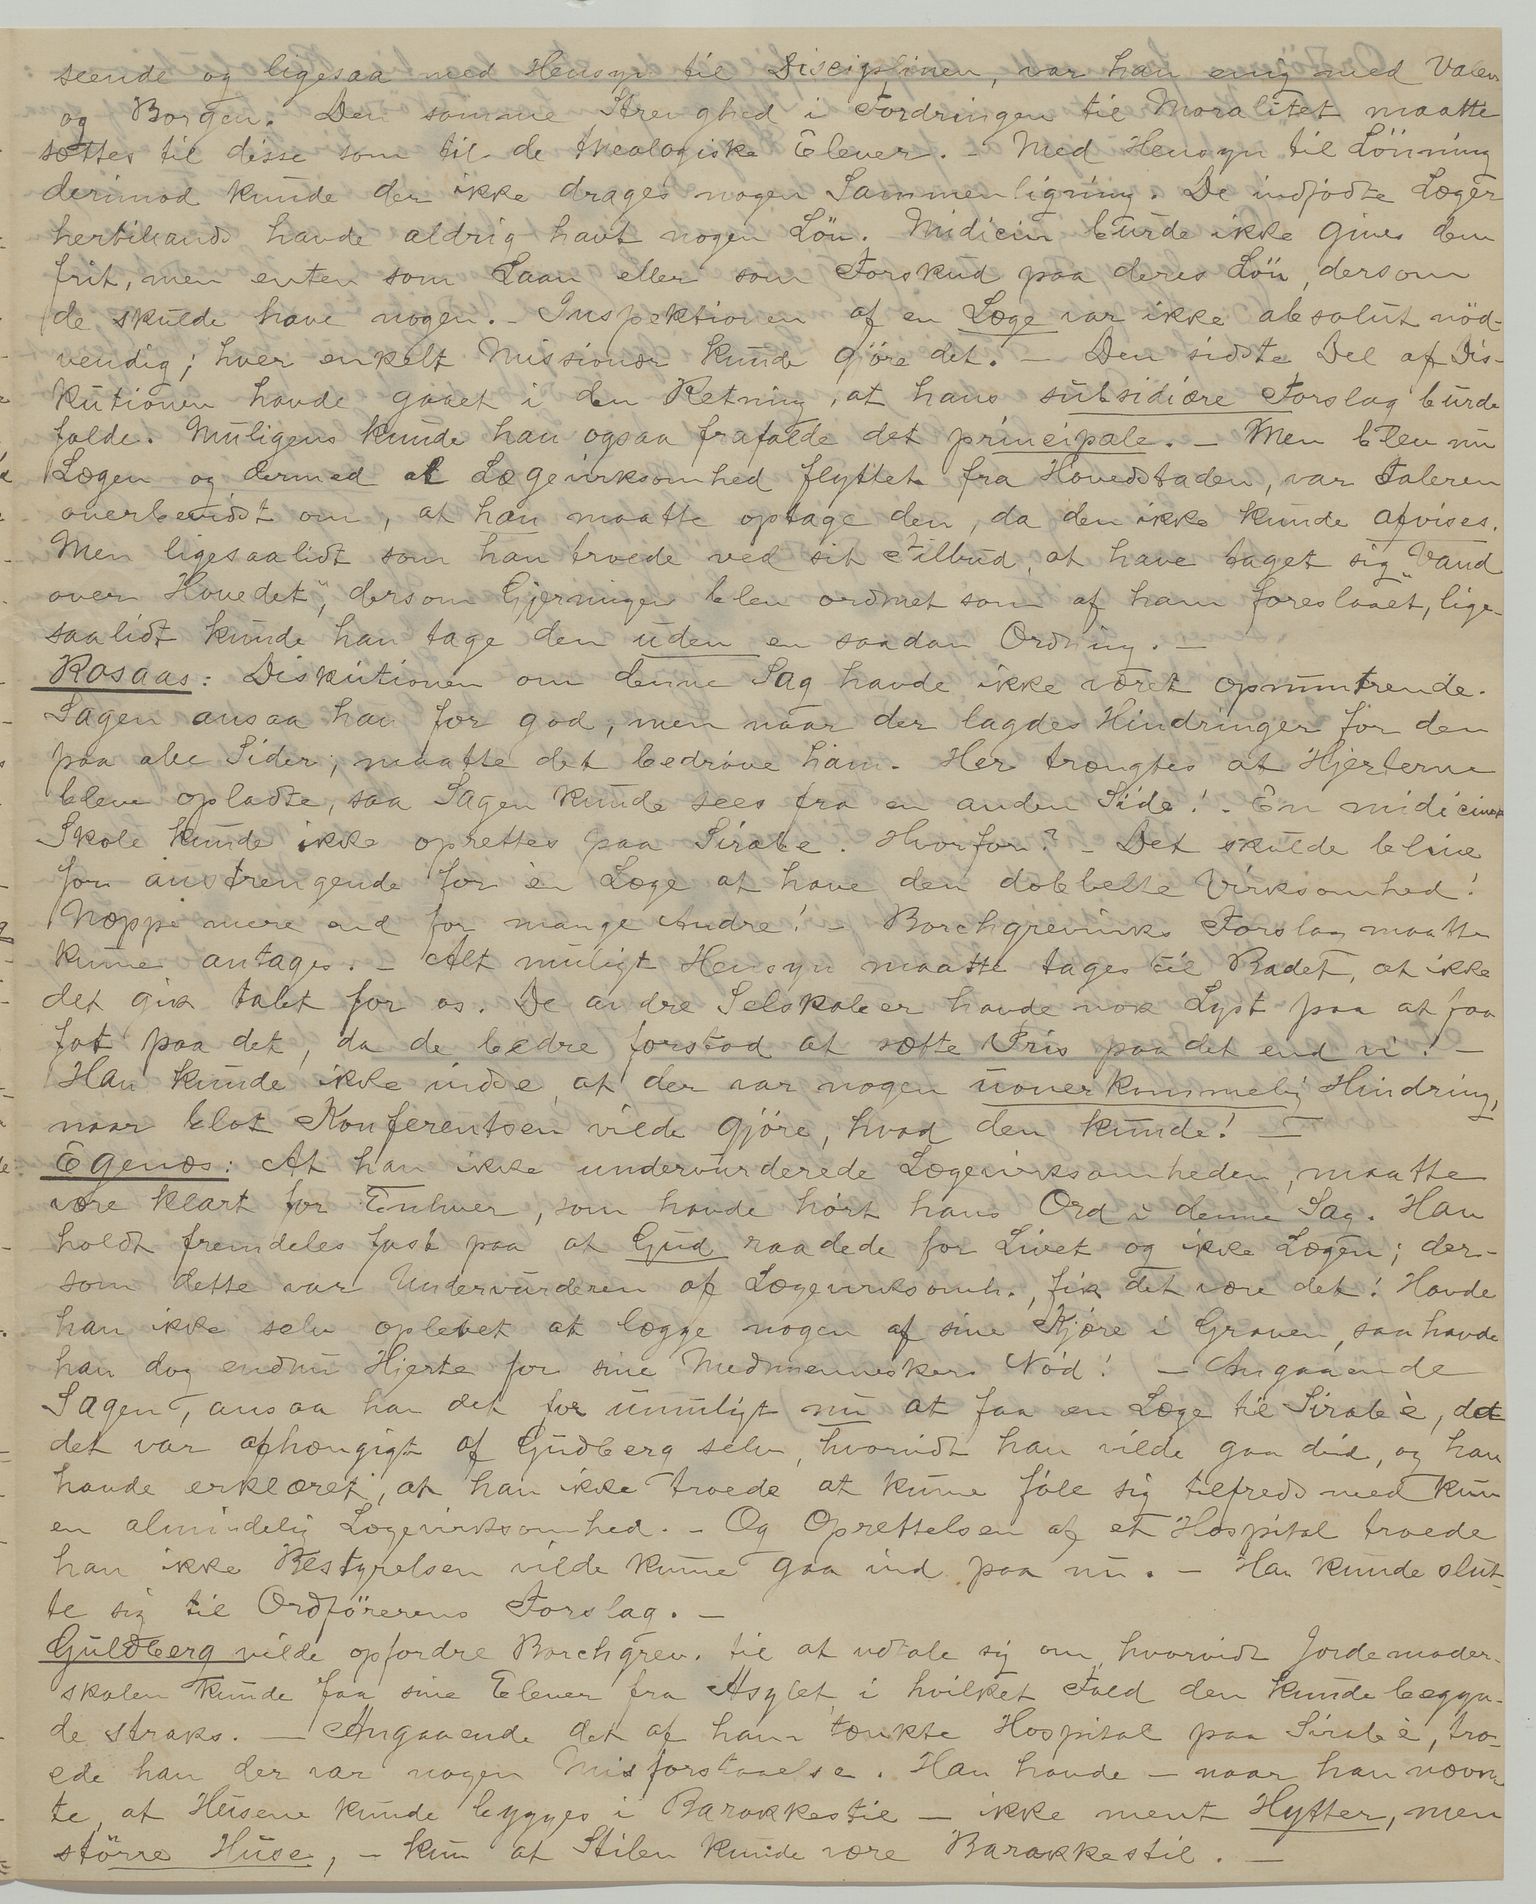 seende og ligesaa med Hensyn til Disciplinen, var han enig med Valen
og Borgen. Den samme Strenghed i Fordringen til Moralitet maatte
sættes til disse som til de theologiske Elever. – Med Hensyn til Lönning
derimod kunde der ikke drages nogen Sammenligning. De indfödte Læger
hertillands havde aldrig havt nogen Lön. Midicin burde ikke gives dem
frit, men enten som Laan eller som Forskud paa deres Lön, dersom
de skulde have nogen. – Inspektionen af en Læge var ikke absolut nöd-
vendig; hver enkelt Missionær kunde gjöre det. – Den sidste Del af Dis-
kutionen havde gaaet i den Retning, at hans subsidiære Forslag burde
falde. Muligens kunde han ogsaa frafalde det principale. – Men blev nu
Lægen og dermed al Lægevirksomhed flyttet fra Hovedstaden, var Taleren
overbevidst om, at han maatte optage den, da den ikke kunde afvises.
Men ligesaalidt som han troede ved sit Tilbud, at have taget sig „Vand
over Hovedet", dersom Gjerningen blev ordnet som af ham foreslaaet, lige-
saalidt kunde han tage den uden en saadan Ordning. –
Rosaas: Diskutionen om denne Sag havde ikke været opmuntrende.
Sagen ansaa han for god, men naar der lagdes Hindringer for den
paa alle Sider, maatte det bedröve ham. Her trængtes at Hjerterne
bleve opladte, saa Sagen kunde sees fra en anden Side! – En midicinsk
Skole kunde ikke oprettes paa Sirabe. Hvorfor? – Det skulde blive
for anstrengende for èn Læge at have den dobbelte Virksomhed!
Næppe mere end for mange Andre! – Borchgrevinks Forslag maatte
kunne antages. – Alt muligt Hensyn maatte tages til Badet, at ikke
det gik tabt for os. De andre Selskaber havde nok Lyst paa at faa
fat paa det, da de bedre forstod at sætte Pris paa det end vi! –
Han kunde ikke indse, at der var nogen uoverkommelig Hindring,
naar blot Konferentsen vilde gjöre, hvad den kunde! –
Egenæs: At han ikke undervurderede Lægevirksomheden, maatte
være klart for Enhver, som havde hört hans Ord i denne Sag. Han
holdt fremdeles fast paa at Gud raadede for Livet og ikke Lægen; der-
som dette var Undervurderen af Lægevirksomh., fik det være det! Havde
han ikke selv oplevet at lægge nogen af sine Kjære i Graven, saa havde
han dog endnu Hjerte for sine Medmenneskers Nöd! – Angaaende
Sagen, ansaa han det for umuligt nu at faa en Læge til Sirabè, det
det var afhængigt af Guldberg selv, hvorvidt han vilde gaa did, og han
havde erklæret, at han ikke troede at kunne föle sig tilfreds med kun
en almindelig Lægevirksomhed. – Og Oprettelsen af et Hospital troede
han ikke Bestyrelsen vilde kunne gaa ind paa nu. – Han kunde slut-
te sig til Ordförerens Forslag. –
Guldberg vilde opfordre Borchgrev. til at udtale sig om, hvorvidt Jordemoder-
skolen kunde faa sine Elever fra Asylet, i hvilket Fald den kunde begyn-
de straks. – Angaaende det af ham tænkte Hospital paa Sirabè, tro-
ede han der var nogen Misforstaaelse. Han havde – naar han nævn-
te, at Husene kunde bygges i Barakkestil – ikke ment Hytter, men
större Huse, – kun at Stilen kunde være Barakkestil. –